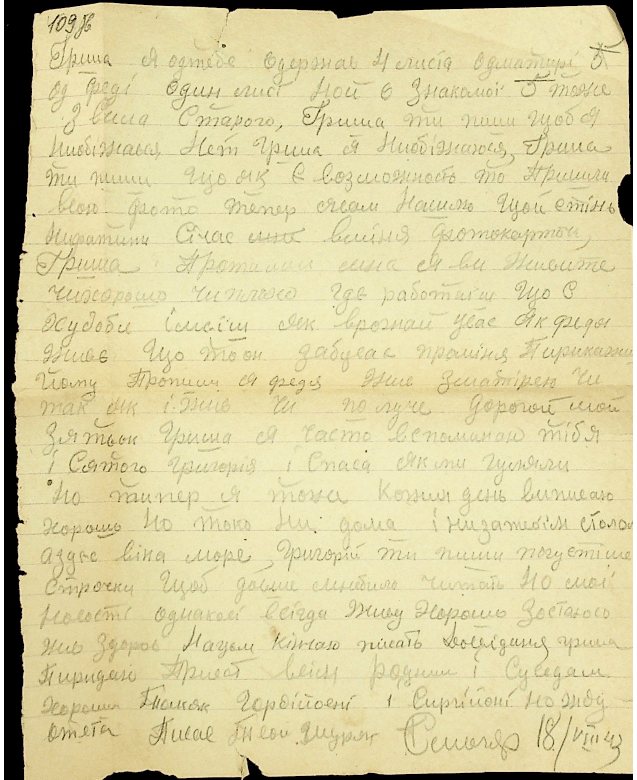 109 зв
Гриша я одтебе одержав 4 листа одматирі 5
од Феді один лист Ной є Знакомої 5 тоже
Звила Старого, Гриша ти пиши щоб я
Ниобіжався Нет Гриша я Ниобіжаюся, Гриша
ти пиши що як є возможность то Пришли
свою фото тепер ясам Нашлю
Січас вміня фотокарточ,
Гриша Пропиши мина як ви живите
чихорошо чиплохо где работаїш що є
худоби і як врожаї увас як Федя
живе що то он забуває проміня Пирикажи
йому Пропиши як Федя живе зматірею чи
так як і жив чи получе Дорогой мой
Зятьок Гриша я часто вспоминаю тібя
і Святого Григорія і Спаса як ми гуляли
Но типер я тоже кожин день випиваю
хорошо Но токо Ни дома і низатвоїм столом
аздес віна море, Григорій ти пиши погустіше
строчки щоб довше можно читать Но мої
новості однакові всігда живу хорошо Зостаюсь
жив здоров Нацьом кінчаю писать Досвіданя Гриша
Пиридаю Привет всім родним і Суседам
хорошим Гордійовні і Сиргійовні но жду
отвєта Писав Твой Шуряк 18/VIII 43